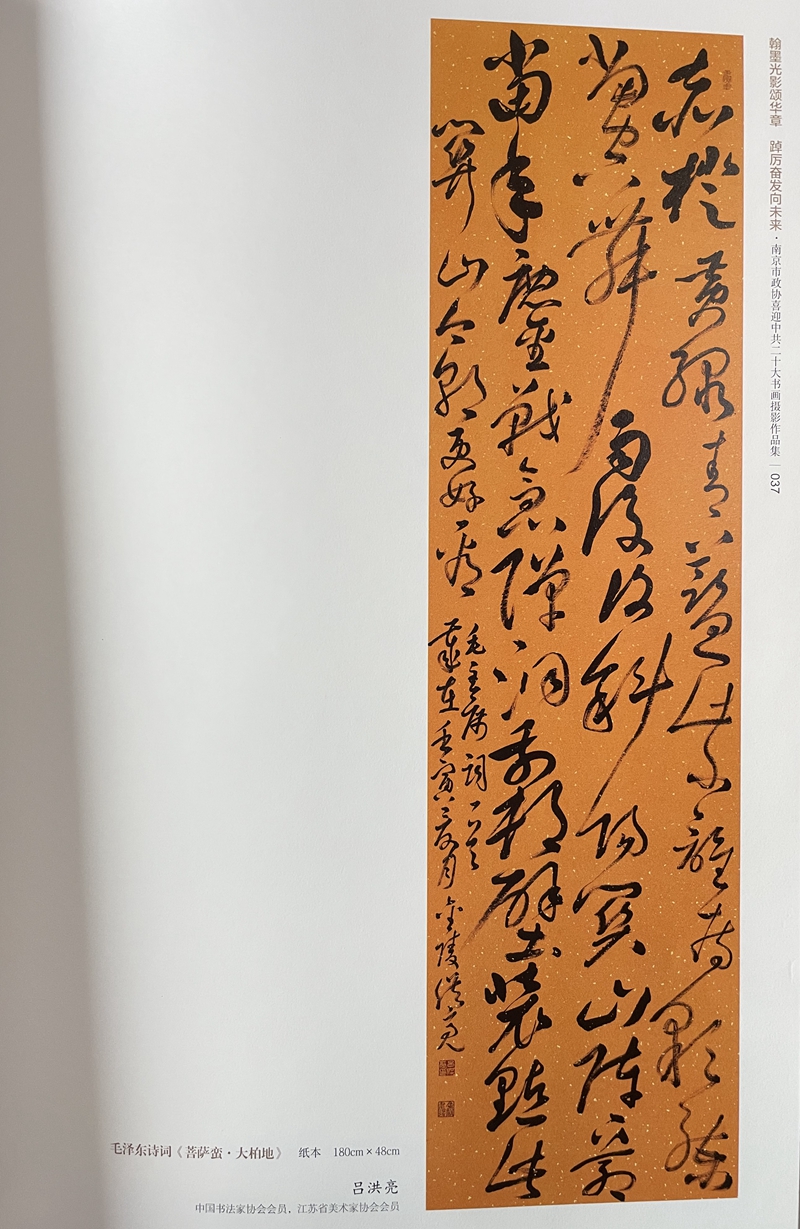 翰墨光影颂华章 踔厉奋发向未来·南京市政协喜迎中共二十大书画摄影作品集 | 037
赤橙黃綠青藍紫誰持彩練
當空舞雨後復斜陽關山陣陣蒼
當年鏖戰急彈洞前村壁裝點此
關山今朝更好看
毛主席詞一首
歲在壬寅月金陵洪亮
毛泽东诗词《菩萨蛮·大柏地》 纸本 180cm×48cm
吕洪亮
中国书法家协会会员，江苏省美术家协会会员